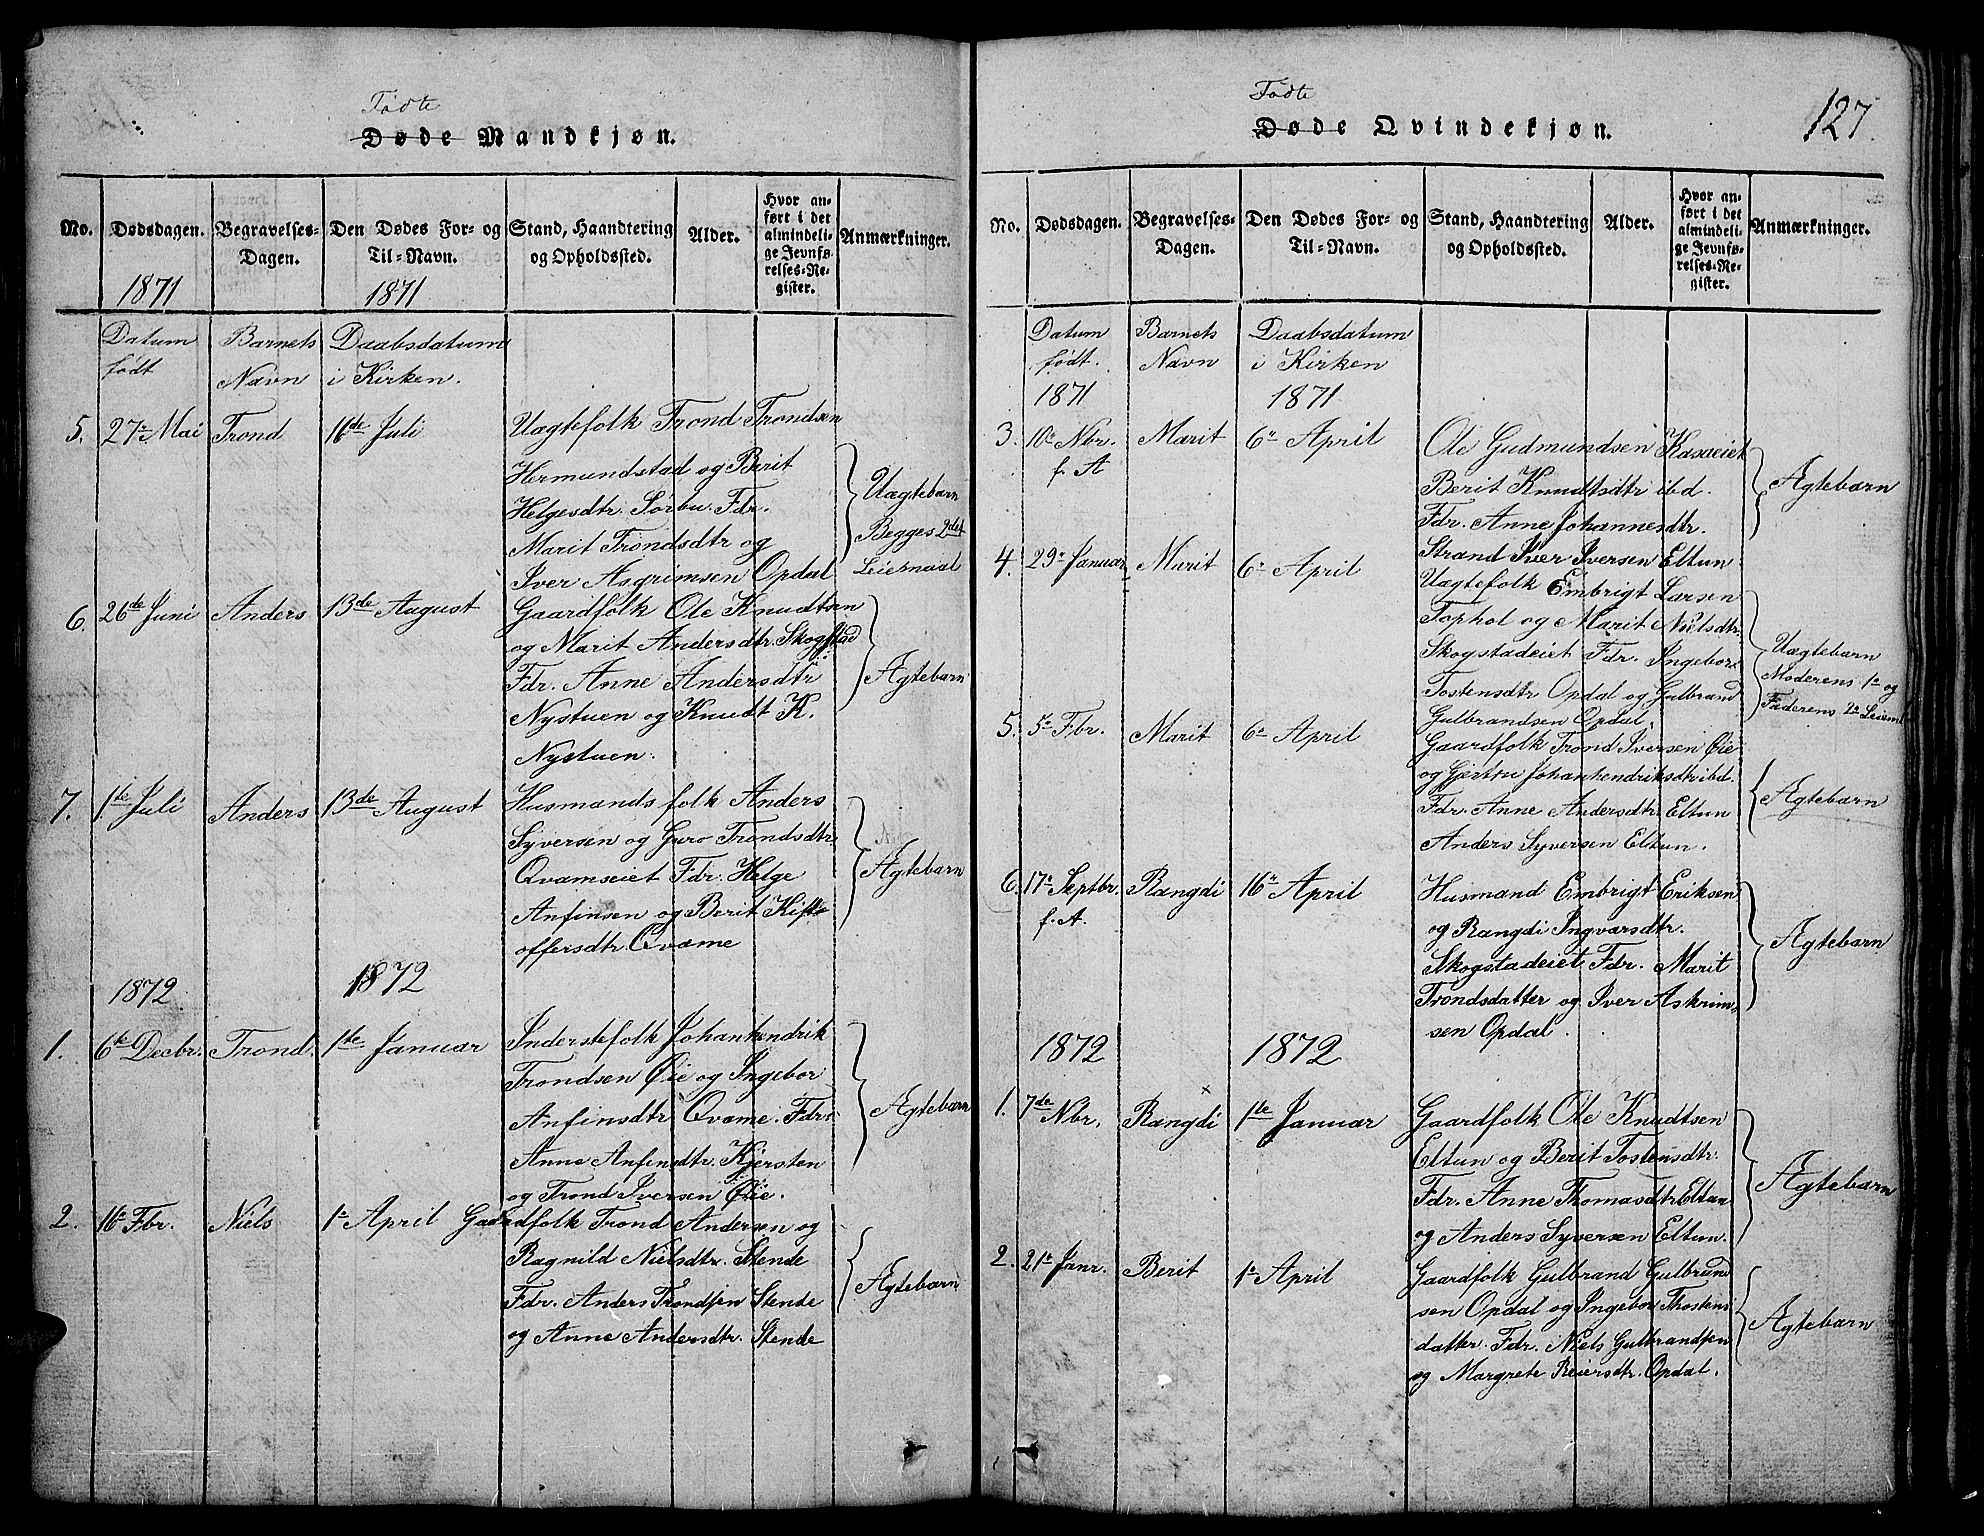 Fødte
Døde Mandkjøn.
No.
Dødsdagen.
1871
Begravelses-
Dagen.
Den Dødes For- og
Til-Navn.
1871
Stand, Haandtering
og Opholdssted.
Alder.
Hvor an-
ført i det
almindeli-
ge Jevnfø-
relses-Re-
gister.
Anmærkninger.
Datum
født
Barnets
Navn
Daabsdatum
i Kirken.
5. 27r Mai Trond 16de Juli
Uagtefolk Trond Trondsen
Hermundstad og Berit
Helgesdtr. Sørbu. Fdr.
Marit Trondsdtr og
Iver Asgrimsen Opdal
Uægtebarn
Begges 2det
Leiermaal
6. 26de Juni Anders 13de August
Gaardfolk Ole Knudtsen
og Marit Andersdtr. Skogstad
Fdr. Anne Andersdtr
Nystuen og Knudt K.
Nystuen.
Ægtebarn
7. 1te Juli Anders 13de August
Husmandsfolk Anders
Syversen og Guro Trondsdtr.
Qvamseiet Fdr. Helge
Anfinsen og Berit Kisto
offersdtr. Qvame
Ægtebarn
1872 1872
1. 6te Decbr. Trond. 1te Januar
Inderstefolk Johankendrik
Trondsen Øie og Ingebor
Anfinsdtr. Qvame. Fdr.
Anne Anfinsdtr. Kjersten
og Trond Iversen Øie.
Ægtebarn
2. 16r Fbr. Niels 1r April Gaardfolk Trond Andersen og
Ragnild Nielsdtr. Stende
Fdr. Anders Trondsen Stende
og Anne Andersdtr. Stende
Ægtebarn
Fødte
Døde Qvindekjøn.
127.
No.
Dødsdagen.
Begravelses-
Dagen.
Den Dødes For- og
Til-Navn.
Stand, Haandtering
og Opholdssted.
Alder.
Hvor an-
ført i det
almindeli-
ge Jevnfø-
relses-Re-
gister.
Anmærkninger.
Datum
født.
1871
Barnets
Navn
Daabsdatum
i Kirken
1871
3. 10r Nbr. Marit 6r April
f. A
Ole Gudmundsen Kasaeiet
Berit Knudtsdtr ibd.
Fdr. Anne Johannesdtr.
Strand Iver Iversen Eltun
Ægtebarn
4. 29r Januar Marit 6r April
Uagtefolk Embrigt Larsen
Tophol og Marit Nielsdtr.
Skogstadeiet Fdr. Ingebor
Tostensdtr Opdal og Gulbrand
Gulbrandsen Opdal.
Uægtebarn
Moderens 1r og
Faderens 2r Leierml
5. 5r Fbr. Marit 6r April
Gaardfolk Trond Iversen Øie
og Gjertru Johanhendriksdtr ibd.
Fdr. Anne Andersdtr. Eltun
Anders Syversen Eltun.
Ægtebarn
6. 17r Septbr. Rangdi 16r April
f. A.
Husmand Embrigt Eriksen
og Rangdi Ingvarsdtr.
Skogstadeiet Fdr. Marit
Trondsdatter og Iver Askrim
sen Opdal.
Ægtebarn
1872 1872
1. 7de Nbr. Rangdi 1te Januar
Gaardfolk Ole Knudtsen
Eltun og Berit Tostensdtr.
Fdr. Anne Thomasdtr Eltun
og Anders Syversen Eltun.
Ægtebarn
2. 21r Janr. Berit 1r April
Gaardfolk Gulbrand Gulbrand
sen Opdal og Ingebor Thostens
datter. Fdr. Niels Gulbrandsen
og Margrete Reiersdtr. Opdal.
Ægtebarn